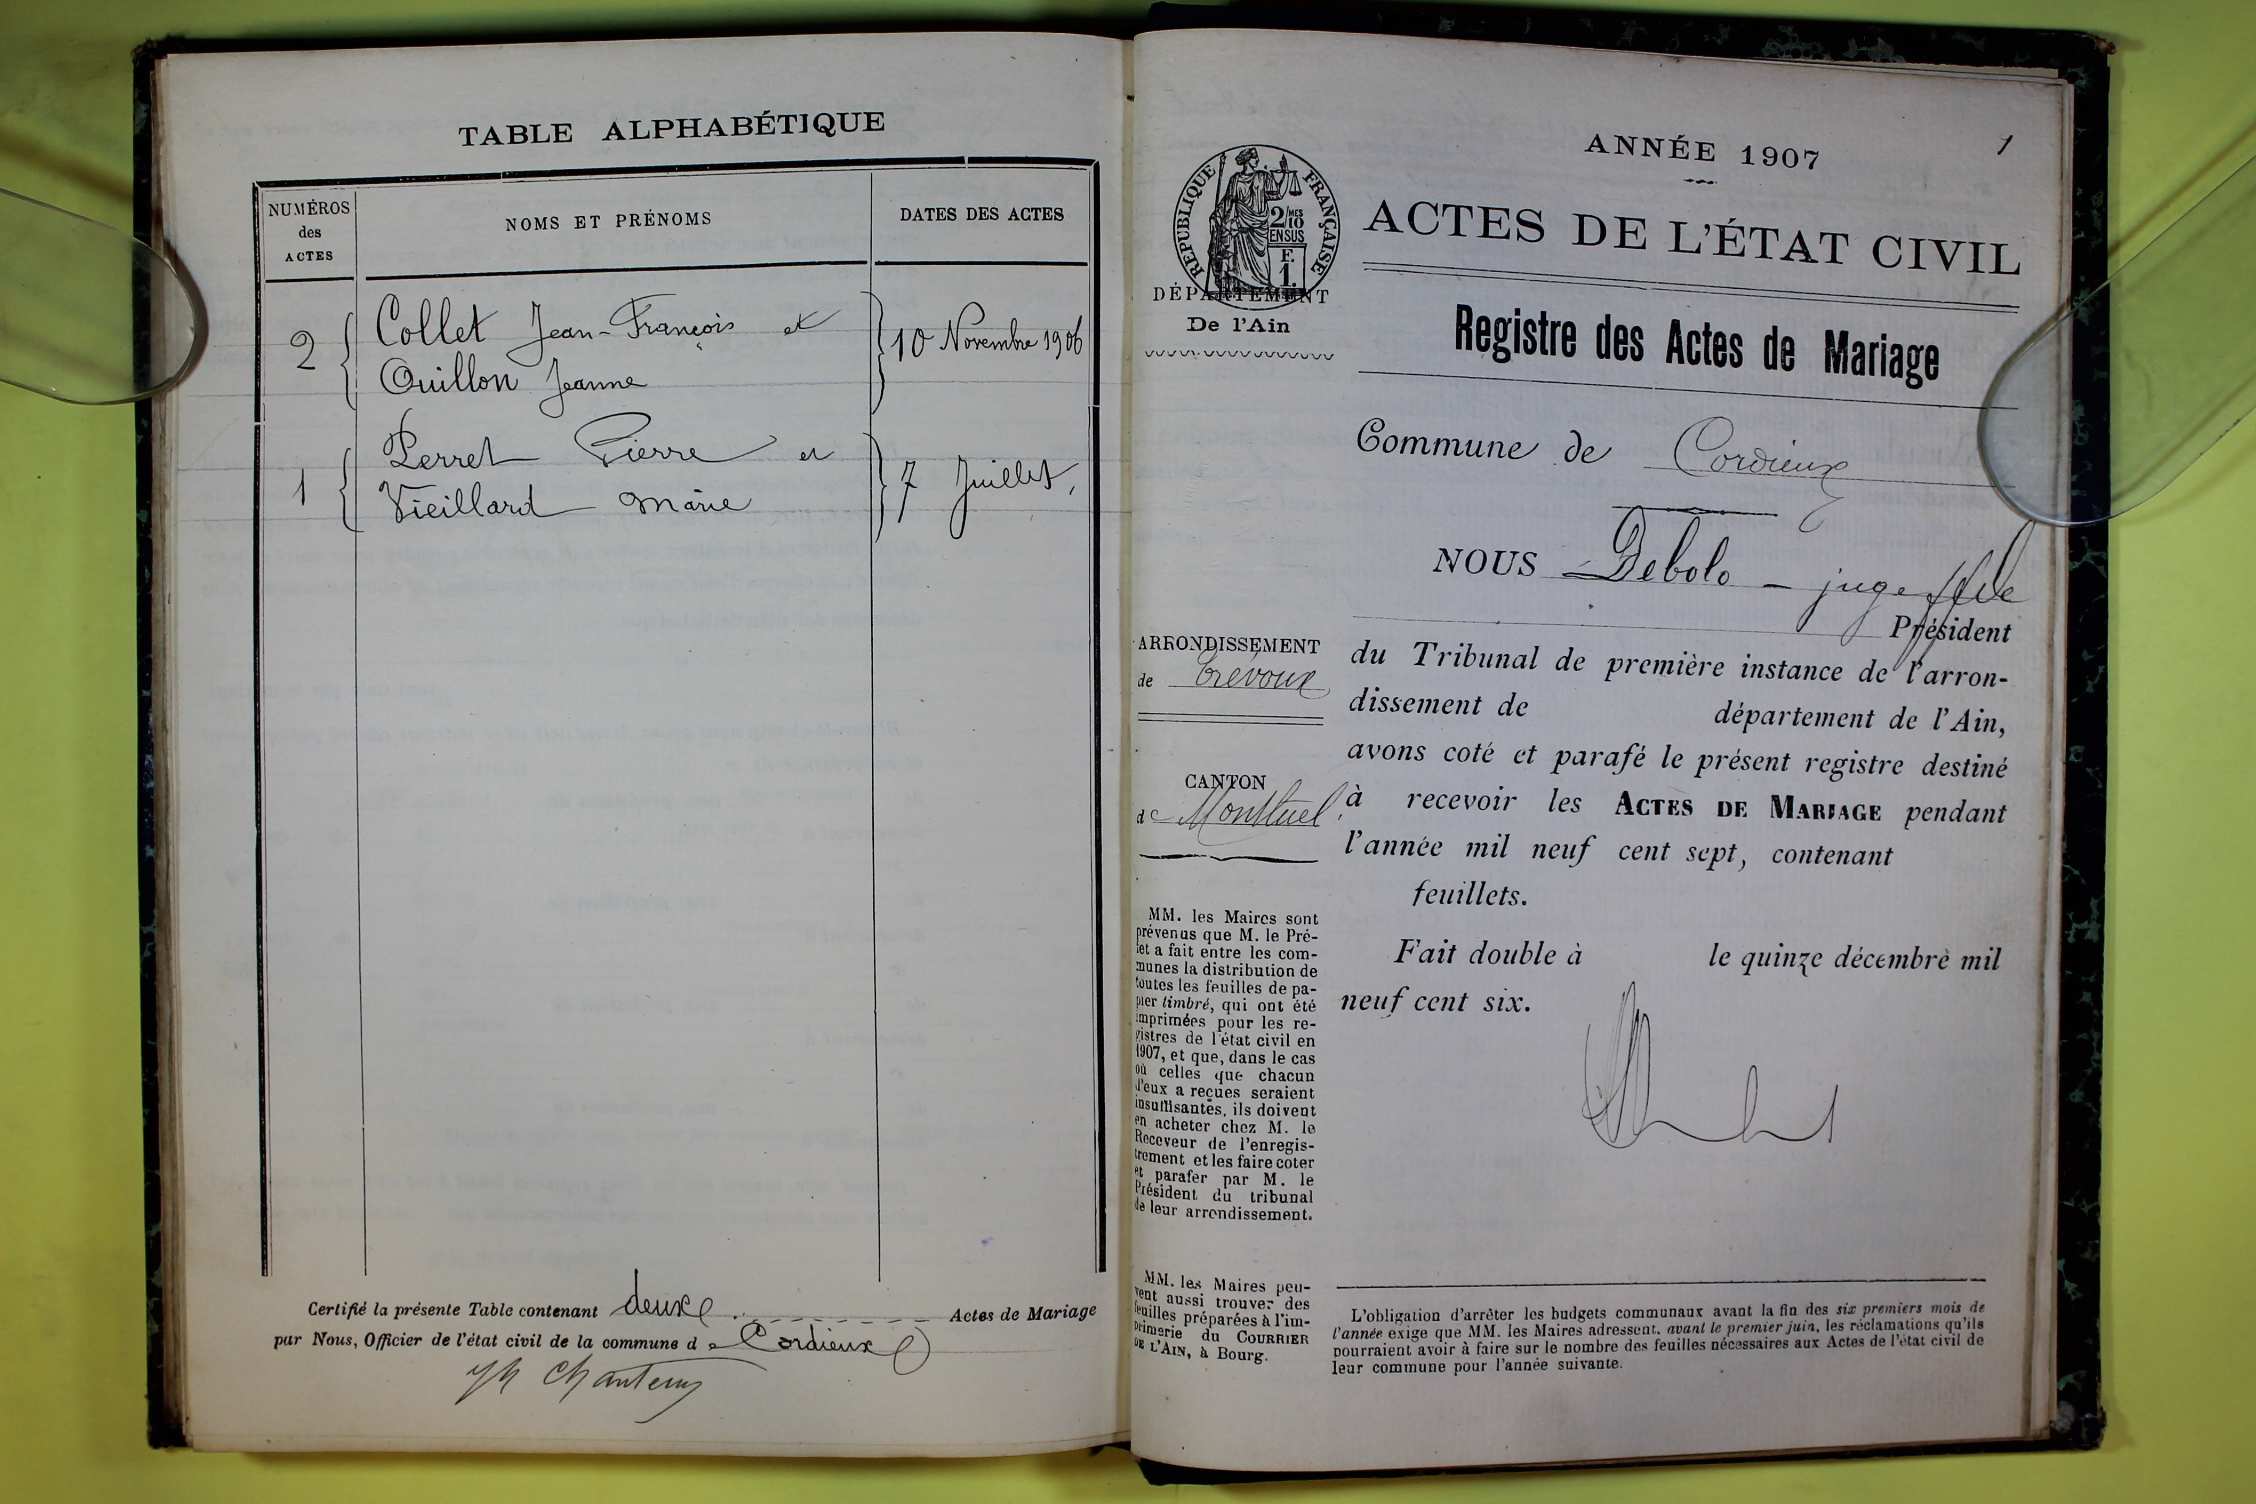 TABLE ALPHABÉTIQUE
NUMÉROS
des
ACTES
NOMS ET PRÉNOMS
DATES DES ACTES
2 Collet Jean-François et
Ouillon Jeanne
10 Novembre 1906
1 Perret Pierre et
Vieillard Marie
7 Juillet,
Certifié la présente Table contenant deux Actes de Mariage
par Nous, Officier de l'état civil de la commune de Cordieux
1
ANNÉE 1907
RÉPUBLIQUE FRANÇAISE
2/10 MES
EN SUS
F.
1.
DÉPARTEMENT
De l'Ain
ACTES DE L'ÉTAT CIVIL
Registre des Actes de Mariage
Commune de Cordieux
NOUS Debolo - juge
Président
du Tribunal de première instance de l'arron-
dissement de département de l'Ain,
avons coté et parafé le présent registre destiné
à recevoir les ACTES DE MARIAGE pendant
l'année mil neuf cent sept, contenant
feuillets.
Fait double à le quinze décembre mil
neuf cent six.
ARRONDISSEMENT
de Trévoux
CANTON
de Montluel
MM. les Maires sont
prévenus que M. le Pré-
fet a fait entre les com-
munes la distribution de
toutes les feuilles de pa-
pier timbré, qui ont été
imprimées pour les re-
gistres de l'état civil en
1907, et que, dans le cas
où celles que chacun
d'eux a reçues seraient
insuffisantes, ils doivent
en acheter chez M. le
Receveur de l'enregis-
trement et les faire coter
et parafer par M. le
Président du tribunal
de leur arrondissement.
MM. les Maires peu-
vent aussi trouver des
feuilles préparées à l'im-
primerie du COURRIER
DE L'AIN, à Bourg.
L'obligation d'arrêter les budgets communaux avant la fin des six premiers mois de
l'année exige que MM. les Maires adressent, avant le premier juin, les réclamations qu'ils
pourraient avoir à faire sur le nombre des feuilles nécessaires aux Actes de l'état civil de
leur commune pour l'année suivante.